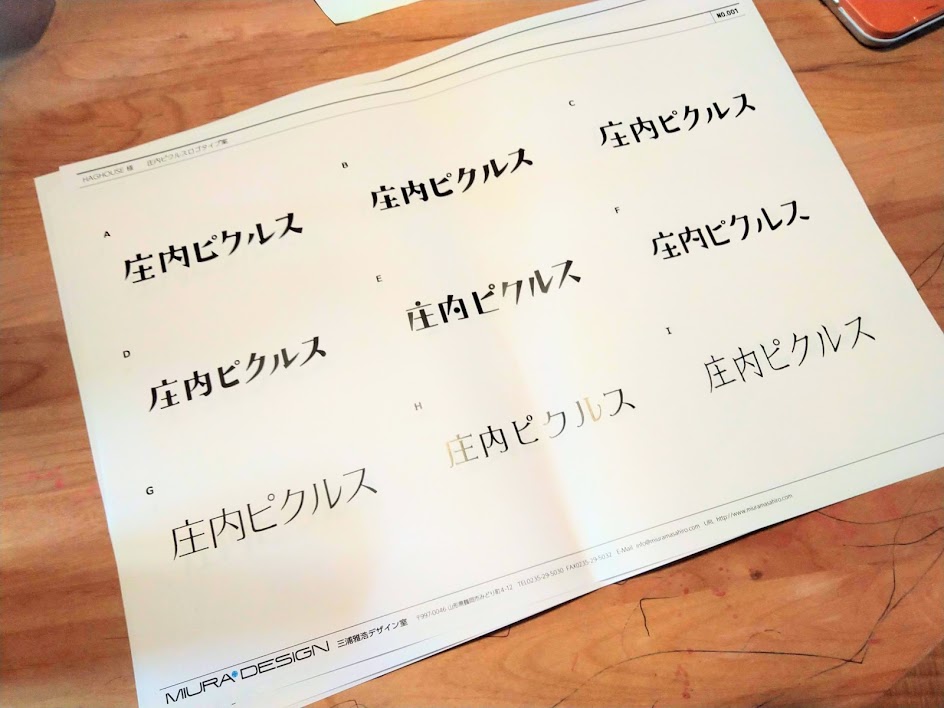 NO.001
HAGHOUSE 様 庄内ピクルスロゴタイプ案
A
庄内ピクルス
B
庄内ピクルス
C
庄内ピクルス
D
庄内ピクルス
E
庄内ピクルス
F
庄内ピクルス
G
庄内ピクルス
H
庄内ピクルス
I
庄内ピクルス
MIURA DESIGN 三浦雅浩デザイン室 〒997-0046 山形県鶴岡市みどり町4-12 TEL0235-29-5030 FAX0235-29-5032 E-Mail info@miuramasahiro.com URL http://www.miuramasahiro.com